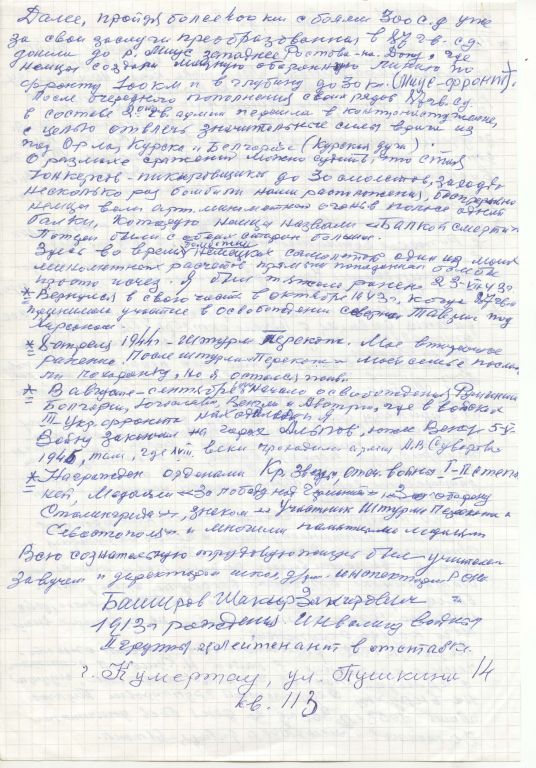 Далее, пройдя более 400 км с боями 300 с.д уже
за свои заслуги преобразованная в 87 гв. сд.
дошли до р. Миус западнее Ростова-на-Дону, где
немцы создали мощную оборонную линию по
фронту 100 км и в глубину до 30 км. (Миус-фронт).
После очередного пополнения своих рядов 87 гв сд.
в составе 2 гв. армии перешла в контрнаступление,
с целью отвлечь значительные силы врага из
под Орла, Курска и Белгорода (Курская дуга).
О размахе сражений можно судить, что стая
Юнкерсов-пикировщиков до 30 самолетов, заходя
несколько раз бомбили наши расположения, беспрерывно
немцы вели арт. минометный огонь в полосе одной
балки, которую немцы назвали «Балкой смерти»
Потери были с обеих сторон большие.
Здесь во время бомбежки немецких самолетов один из моих
минометных расчетов прямым попаданием бомбы
просто исчез. Я был тяжело ранен 23-VII-43 г.
* Вернулся в свою часть в октябре 1943 г, когда 87 гв сд
принимала участие в освобождении северной Таврии под
Херсоном.
* 8 апреля 1944 г- штурм Перекопа. Мое вторичное
ранение. После штурма Перекопа моей семье послали
похоронку, но я остался жив.
* В августе-сентябре начало освобождения Румынии
Болгарии, Югославии, Венгрии и Австрии, где в войсках
III Укр. фронта находился и я
Войну закончил на горах Альпов, южнее Вены 5-V-
1945, там, где XVIII веке проходили армии А.В Суворова
* Награжден орденами Кр. Звезды, Отеч войны I-II степе
ней, Медалями «За победу над Германией» За оборону
Сталинграда», знаком «Участник Штурма Перекопа и
Севастополя» и многими памятными медалями
Всю сознательную трудовую жизнь был учителем
завучем и директором школ, инспектором РОНО
Баширов Шакир Закирович
1913 г рождения Инвалид войны
II группы лейтенант в отставке.
г. Кумертау, ул. Пушкина 14
кв. 113